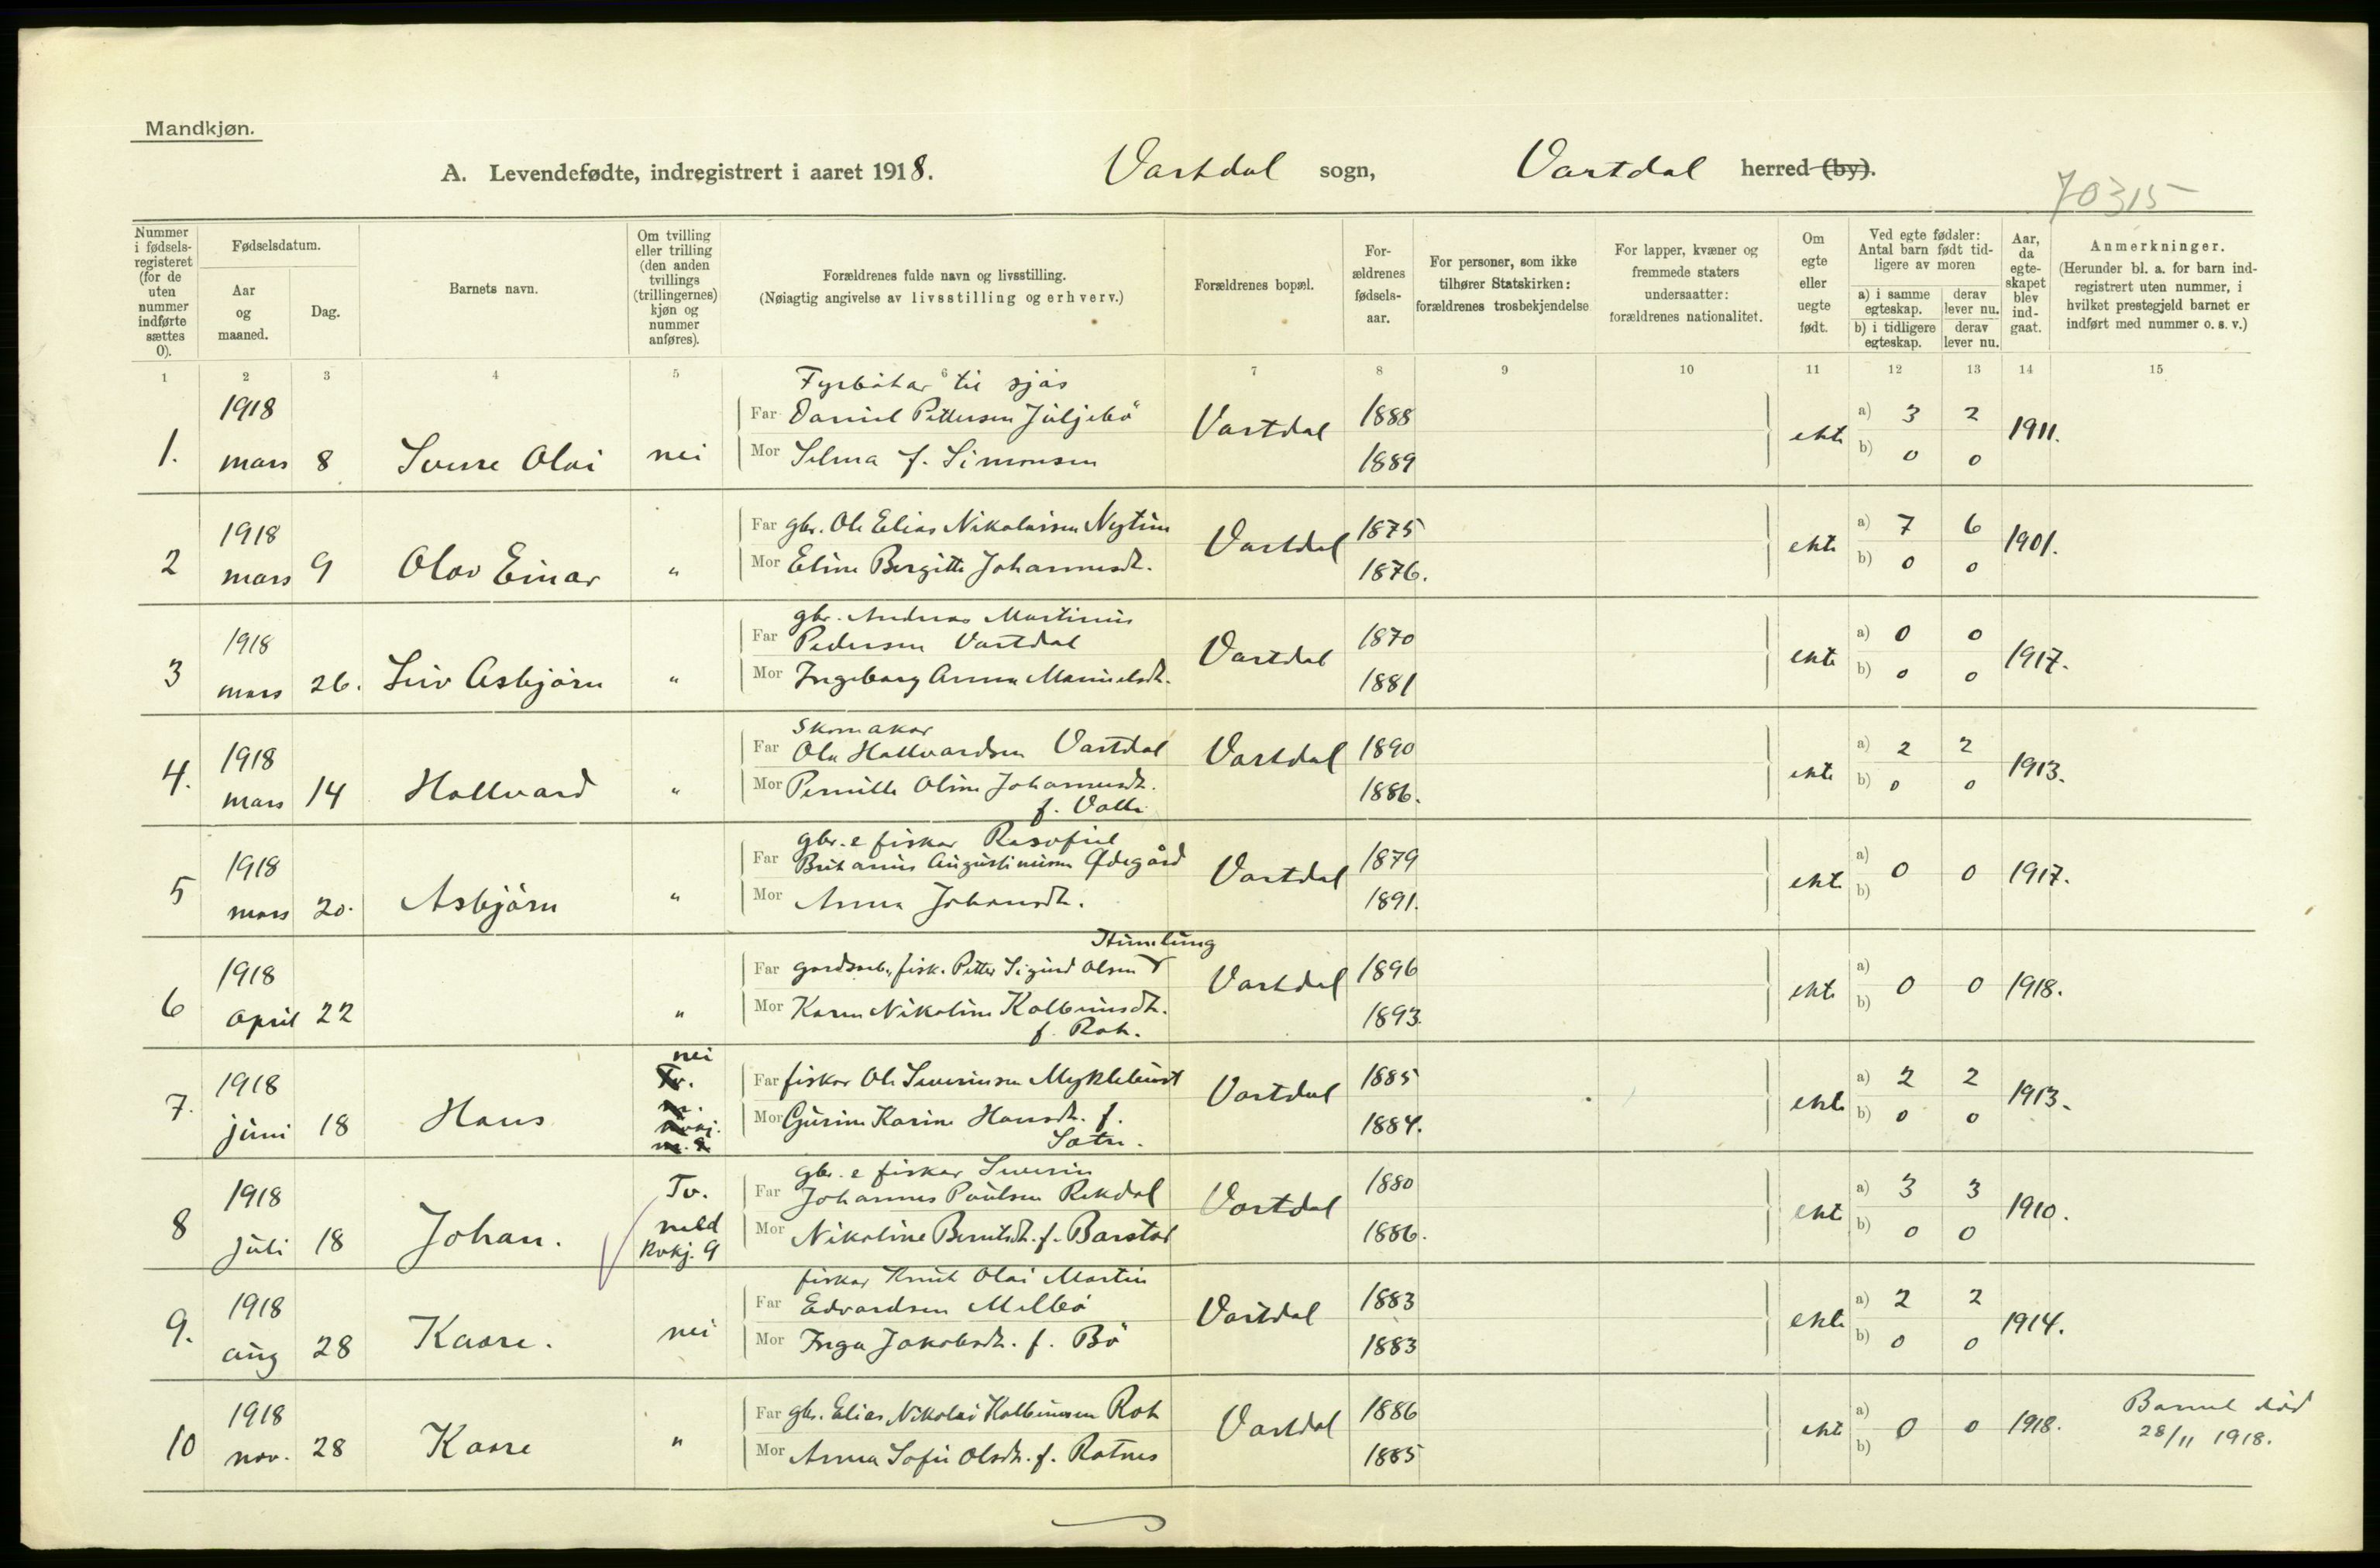 Mandkjøn.
A. Levendefødte, indregistrert i aaret 1918. Vartdal sogn, Vartdal herred (by).
70315
Nummer i fødsels-registeret (for de uten nummer indførte sættes 0).
Fødselsdatum.
Aar og maaned.
Dag.
Barnets navn.
Om tvilling eller trilling (den anden tvillings (trillingernes) kjøn og nummer anføres).
Forældrenes fulde navn og livsstilling.
(Nøiagtig angivelse av livsstilling og erhverv.)
Forældrenes bopæl.
For-ældrenes fødsels-aar.
For personer, som ikke tilhører Statskirken: forældrenes trosbekjendelse
For lapper, kvæner og fremmede staters undersaatter: forældrenes nationalitet.
Om egte eller uegte født.
Ved egte fødsler: Antal barn født tid-ligere av moren
a) i samme egteskap. derav lever nu.
b) i tidligere egteskap. derav lever nu.
Aar, da egte-skapet blev ind-gaat.
Anmerkninger.
(Herunder bl. a. for barn ind-registrert uten nummer, i hvilket prestegjeld barnet er indført med nummer o. s. v.)
1 2 3 4 5 6 7 8 9 10 11 12 13 14 15
Fyrbøtar til sjøs
1918 Far Daniel Pettersen Juljebø 1888 a) 3 2
1. mars 8 Sverre Olai nei Vartdal ekte 1911.
Mor Selma f. Simonsen 1889 b) 0 0
1918 Far gbr. Ole Elias Nikolaisen Nytun 1875 a) 7 6
2 mars 9 Olav Einar " Vartdal ekte 1901.
Mor Eline Bergitte Johannesdt. 1876. b) 0 0
gbr. Andreas Martinus
1918 Far Pedersen Vartdal 1870 a) 0 0
3 mars 26. Liiv Asbjørn " Vartdal ekte 1917.
Mor Ingeborg Anna Manuelsdt. 1881 b) 0 0
Skomakar
1918 Far Ola Hallvardsen Vartdal 1890 a) 2 2
4. mars 14 Hallvard " Vartdal ekte 1913.
Mor Pernille Oline Johannesdt. 1886. b) 0 0
f. Valle
gbr. e fiskar
1918 Far Augustinusen Ødegård 1879 a)
5 mars 20. Asbjørn " Vartdal ekte 0 0 1917.
Mor Anna Johansdt. 1891. b)
Humlung
1918 Far gardsarb., fisk. Petter Sigurd Olsen 1896 a)
6 april 22 " Vartdal ekte 0 0 1918.
Mor Karen Nikoline Kolbeinsdt. 1893. b)
f. Rot.
nei
1918 Tv. Far fiskar Ole Severinsen Myklebust 1885 a) 2 2
7. juni 18 Hans Vartdal ekte 1913.
Mor Gurine Karine Hansdt. f. 1884. b) 0 0
Sætre.
gbr. e fiskar Severin
1918 Tv. Far Johannes Paulsen Rekdal 1880 a) 3 3
8 juli 18 Johan. meld Vartdal ekte 1910.
kvkj. 9 Mor Nikoline Berntsdt. f. Barstad 1886. b) 0 0
fiskar Knut Olai Martin
1918 Far Edvardsen Melbø 1883 a) 2 2
9. aug 28 Kaare. nei Vartdal ekte 1914.
Mor Inga Jakobsdt. f. Bø 1883 b) 0 0
1918 Far gbr. Elias Nikolai Kolbeinsen Rot 1886 a) Barnet død
10 nov. 28 Kaare " Vartdal ekte 0 0 1918. 28/11 1918.
Mor Anna Sofie Olsdt. f. Rotnes 1885 b)